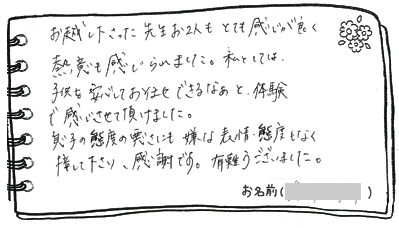 お越し下さった先生お2人もとても感じが良く
熱意も感じられました。私としては、
子供を安心してお任せできるなあと、体験
で感じさせて頂けました。
息子の態度の悪さにも嫌な表情・態度もなく
接して下さり、感謝です。有難うございました。
お名前(